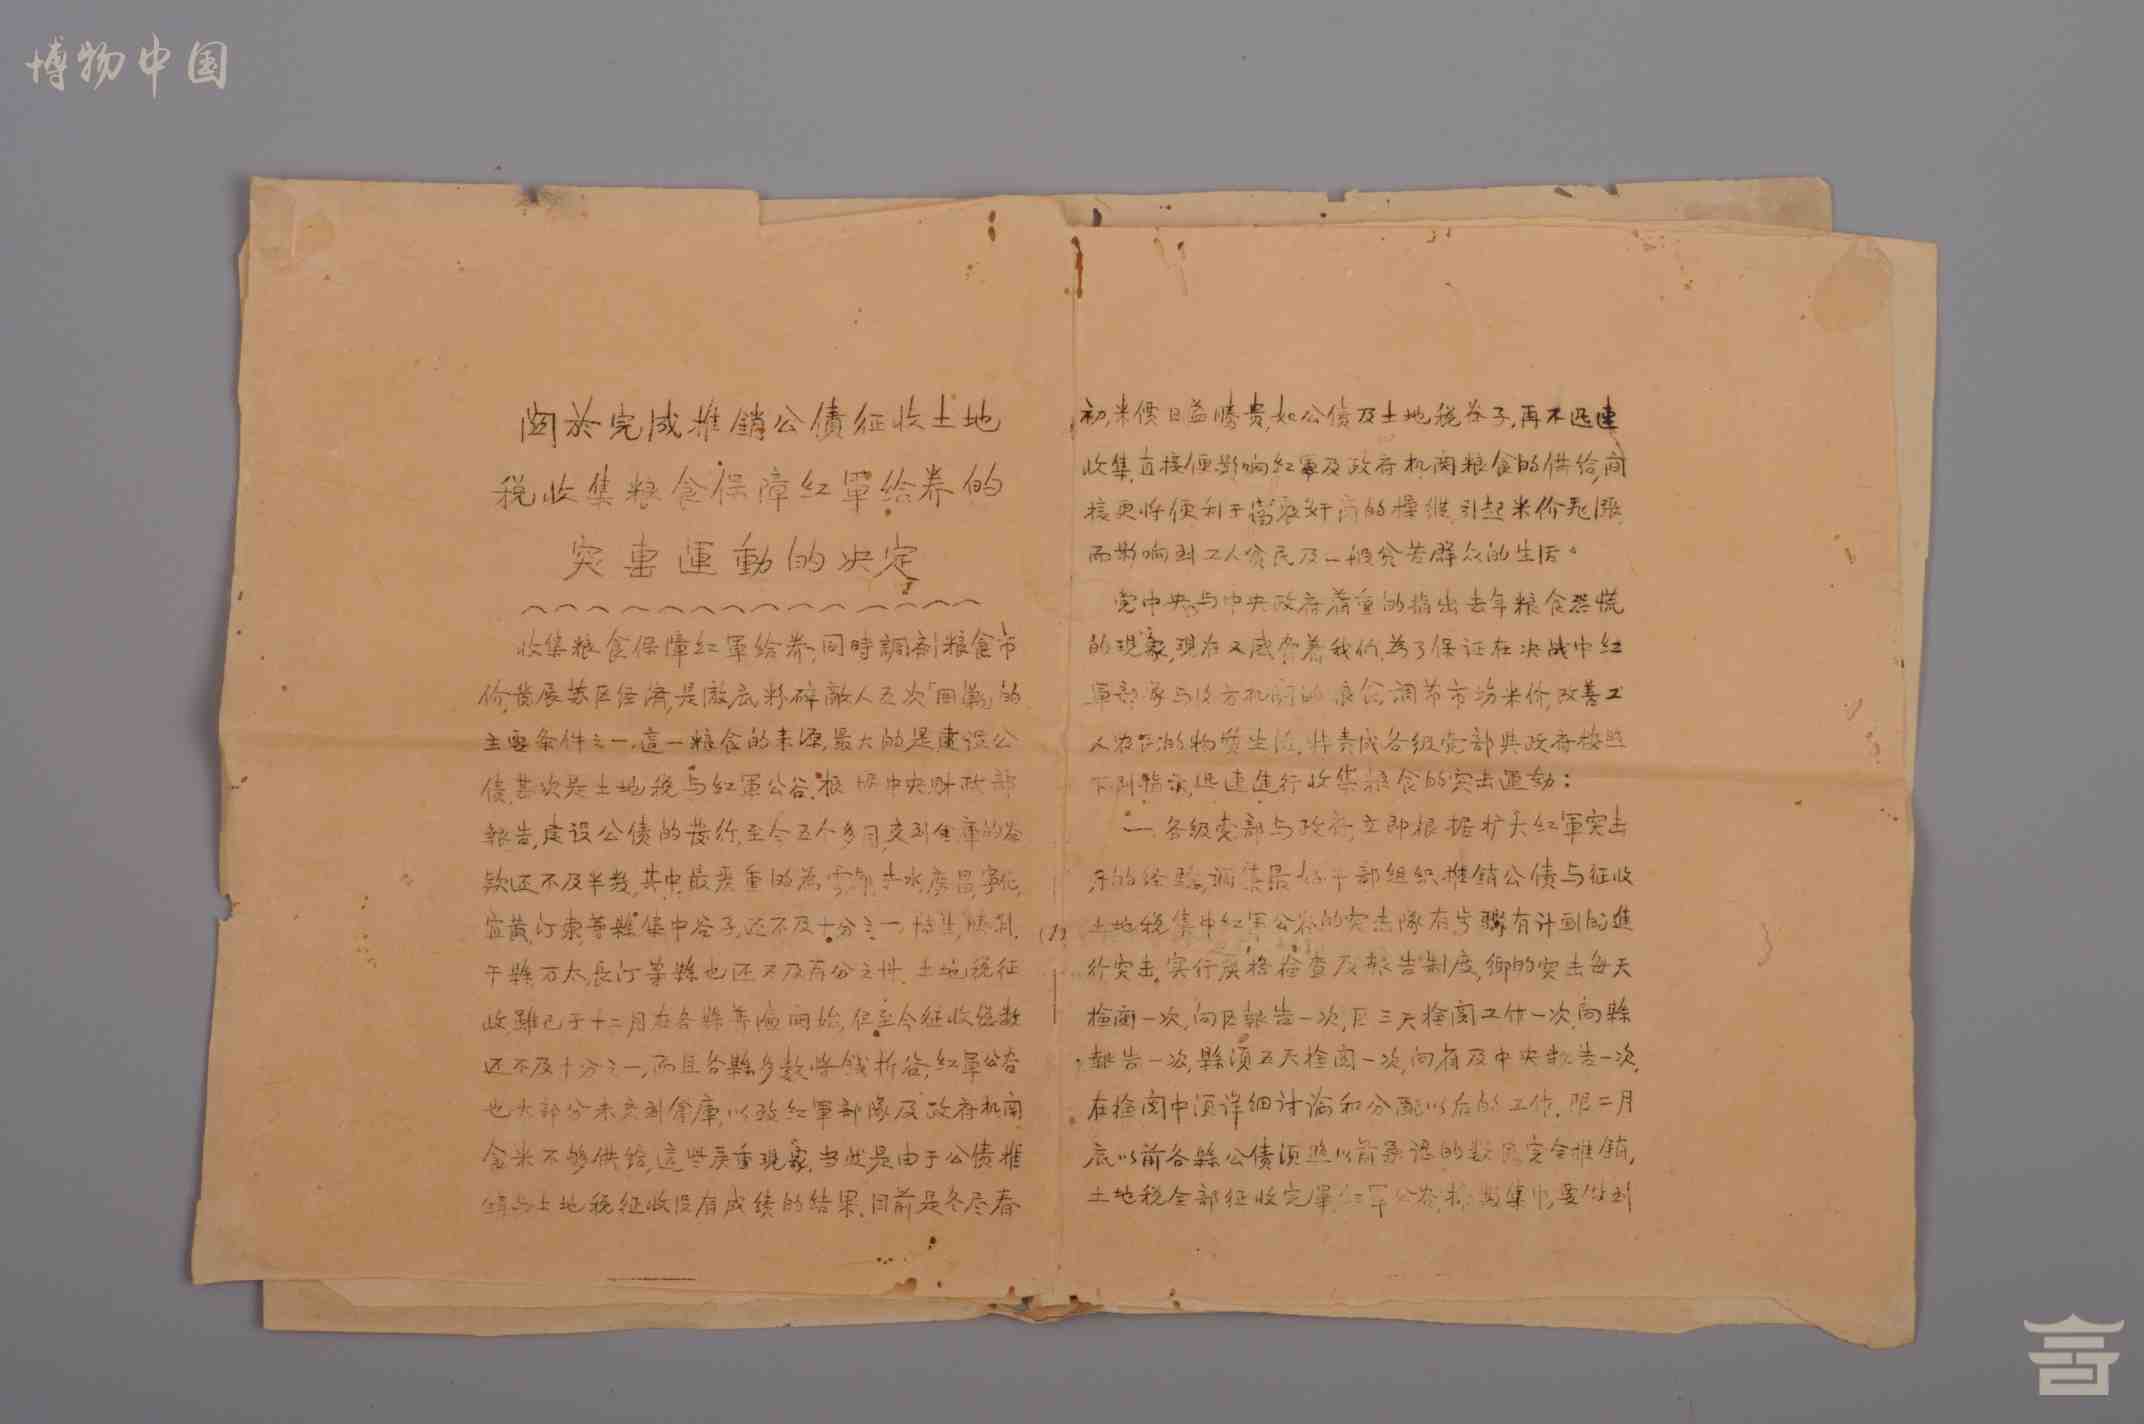 博物中国
関於完成推銷公債征收土地
税收集粮食保障红軍给养的
突击運動的决定
收集粮食保障红軍给养,同時調剂粮食市
价,發展苏区经濟,是澈底粉碎敵人五次「囬剿」的
主要条件之一,這一粮食的来源,最大的是建設公
债,其次是土地税与红軍公谷.根据中央财政部
報告,建设公债的發行,至今五个多月,交到金庫的谷
款还不及半数,其中最严重的為雩都,赤水,廣昌,寧化,
宜黄,汀東,等縣集中谷子,还不及十分之一,博生,勝利,
于縣,万太,長汀等縣也还不及百分之廿.土地税征
收雖已于十二月在各縣普遍開始,但至今征收总数
还不及十分之一,而且各縣多数将钱折谷,红軍公谷
也大部分未交到倉庫,以致红軍部隊及政府机関
食米不够供给,這些严重現象,当然是由于公债推
銷与土地税征收没有成绩的结果.目前是冬尽春
(1)
初,米價日益騰贵,如公债及土地税谷子,再不迅速
收集,直接便影响红軍及政府机関粮食的供给,间
接更将便利于富农奸商的操縱,引起米价飛漲,
而影响到工人贫民及一般贫苦群众的生活。
党中央与中央政府着重的指出去年粮食恐慌
的現象,現在又威脅着我们,為了保证在决战中红
軍部隊与后方机関的粮食,調节市场米价,改善工
人农民的物质生活,特责成各级党部與政府按照
下列指示,迅速進行收集粮食的突击運动:
一.各级党部与政府,立即根据扩大红軍突击
月的经验,調集最好干部组织推銷公债与征收
土地税集中红军公谷的突击隊有步驟有计画的進
行突击,实行严格检查及報告制度,鄉的突击每天
检閲一次,向区報告一次,区三天检閲工作一次,向縣
報告一次,縣須五天检閲一次,向省及中央報告一次,
在检閲中须详细讨论和分配以后的工作.限二月
底以前各縣公债须照以前承認的数目完全推銷,
土地税全部征收完畢,红军公谷,掃数集中,要做到